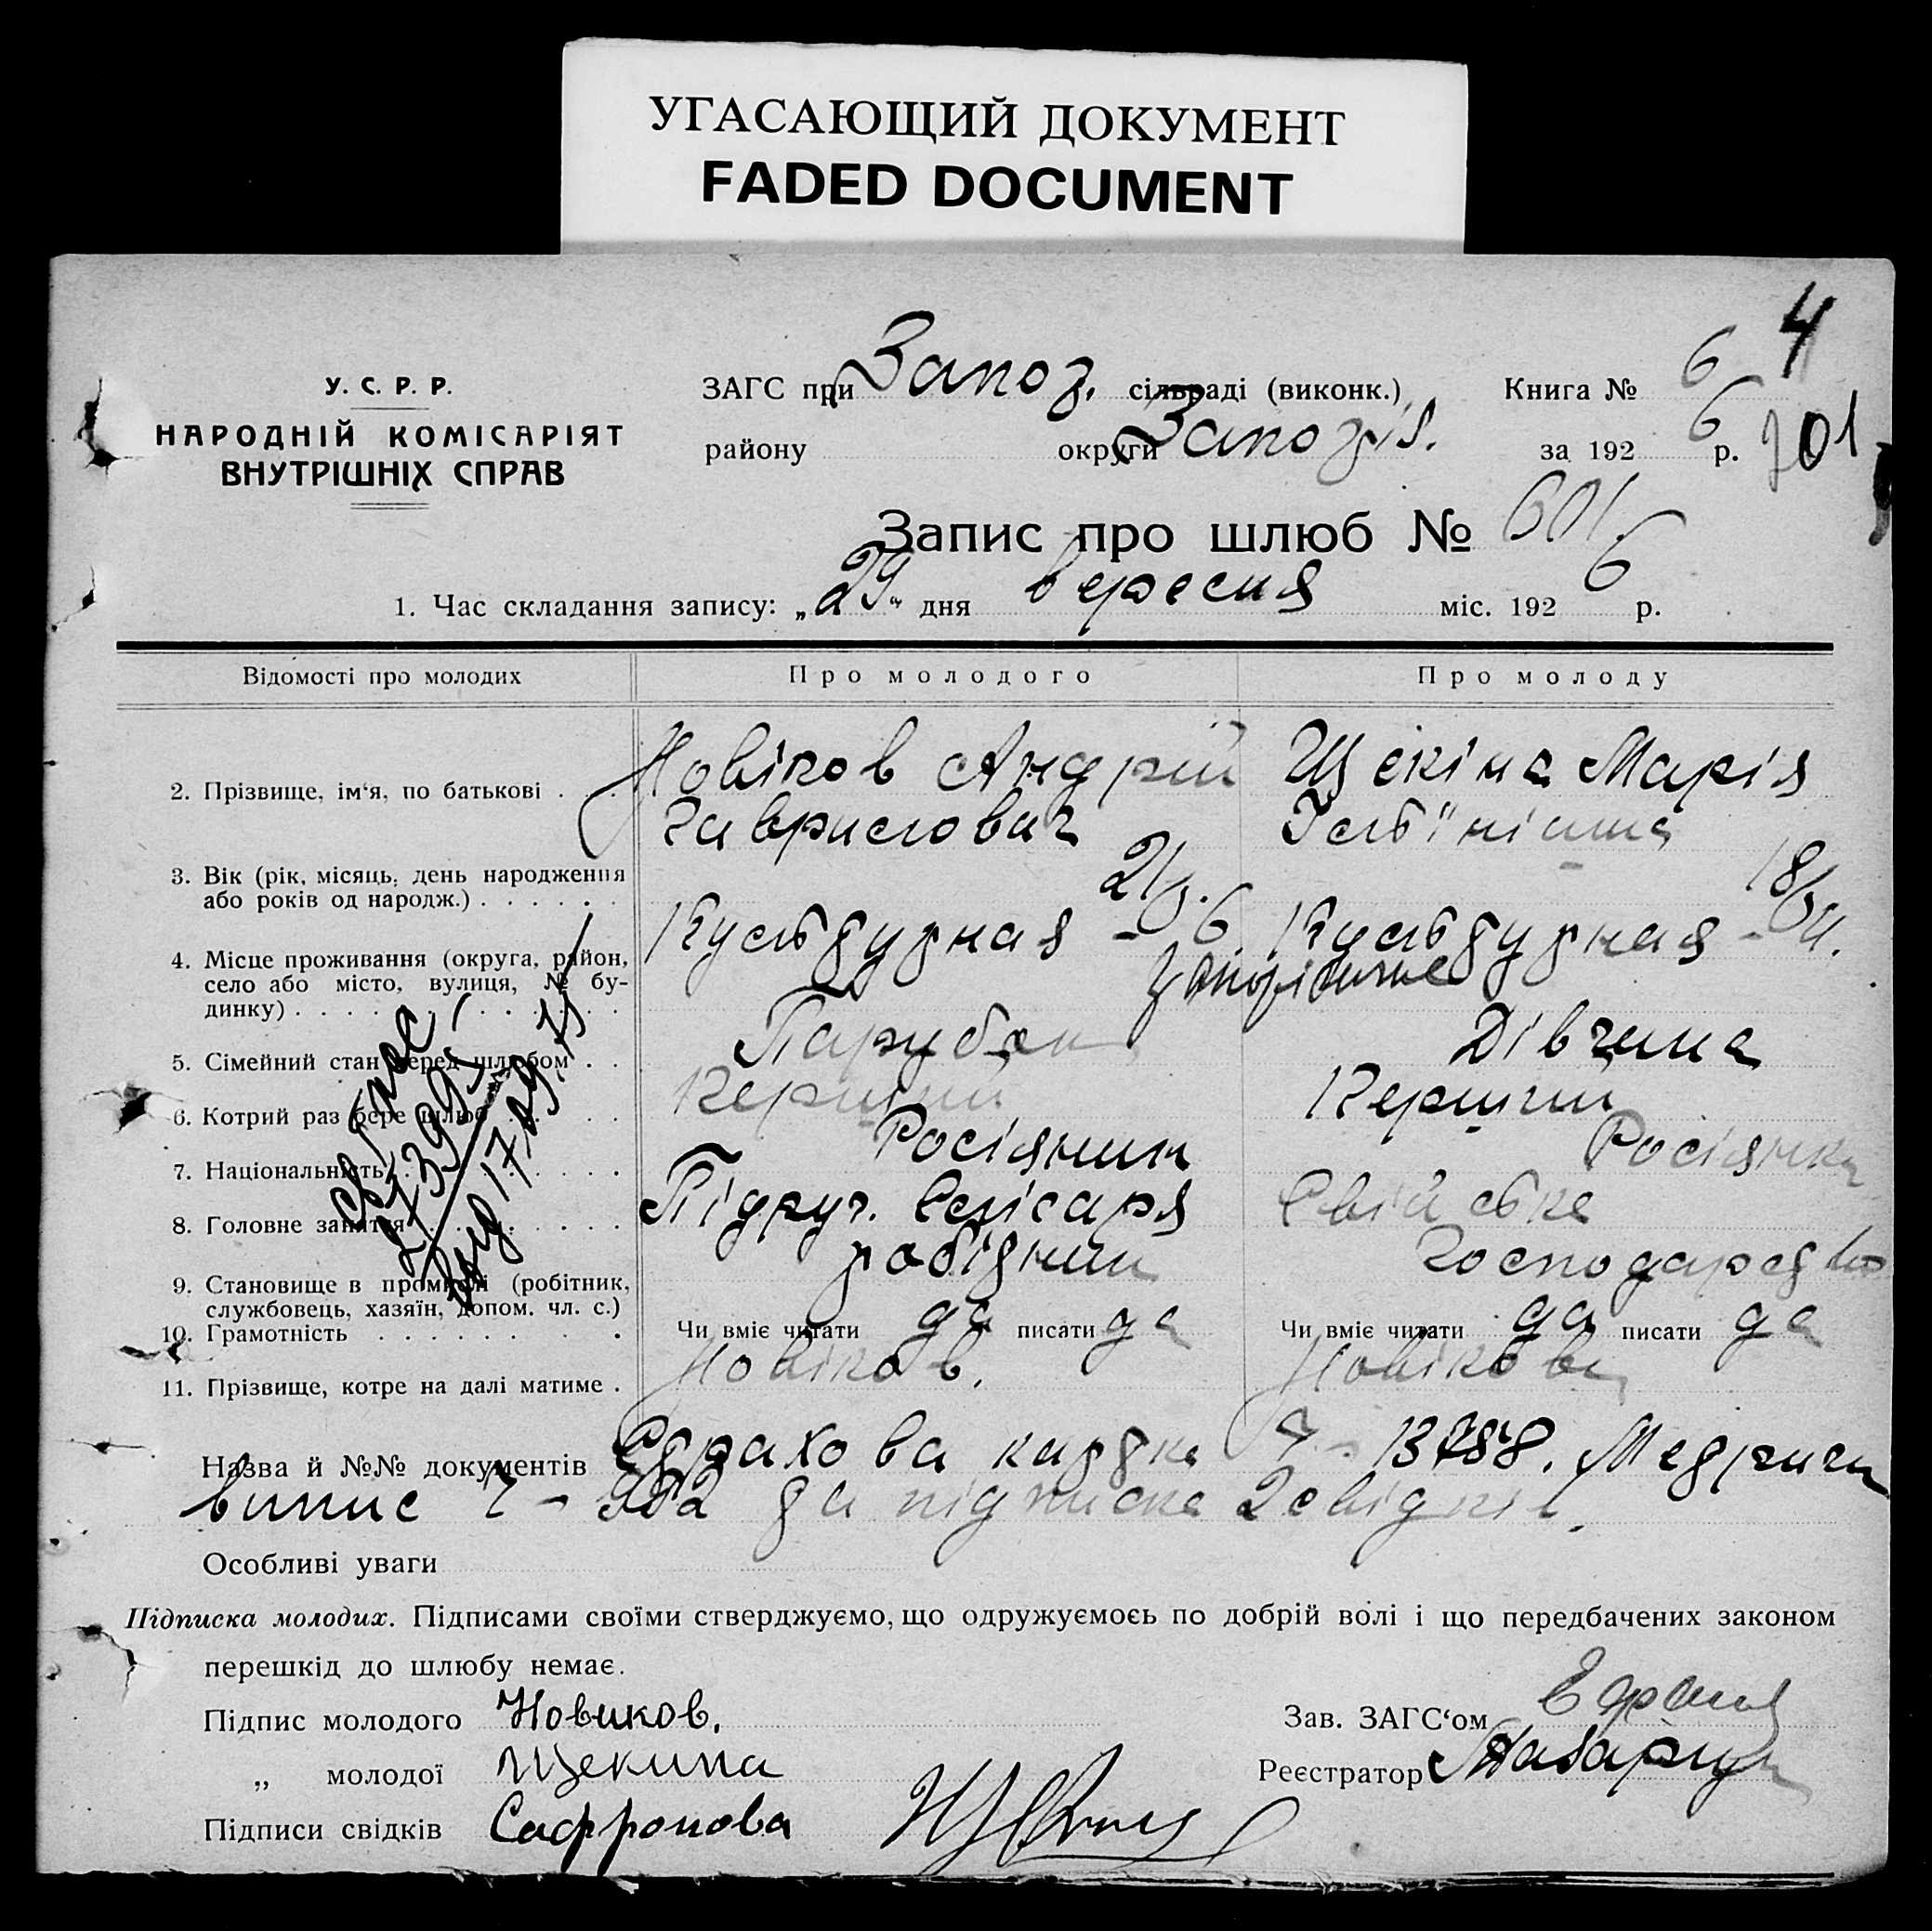 УГАСАЮЩИЙ ДОКУМЕНТ
FADED DOCUMENT
4
У. С. Р. Р.
НАРОДНІЙ КОМІСАРІЯТ
ВНУТРІШНІХ СПРАВ
ЗАГС при Запоз. сільраді (виконк.) Книга № 6
району округи за 192 6 р. 701
Запис про шлюб № 601
1. Час складання запису: „29“ дня вересня міс. 192 6 р.
Відомості про молодих Про молодого Про молоду
2. Прізвище, ім‘я, по батькові . . . Новіков Андрій Щекіна Марія
Гаврилович
3. Вік (рік, місяць, день народження
або років од народж.) . . . . . . 21 р. 18
4. Місце проживання (округа, район,
село або місто, вулиця, № бу-
динку) . . . . . . . . . . .
5. Сімейний стан перед шлюбом . . Парубок Дівчина
6. Котрий раз бере шлюб . . . . Перший Перший
7. Національність . . . . . . . Росіянин Росіянка
8. Головне заняття . . . . . . . Підруч. слюсаря Свійське
робітник господарство
9. Становище в промислі (робітник,
службовець, хазяїн, допом. чл. с.)
10. Грамотність . . . . . . . . Чи вміє читати да писати да Чи вміє читати да писати да
11. Прізвище, котре на далі матиме . Новіков. Новікова
Назва й №№ документів Страхова картка Ч 13788. Метричн
випис Ч - та підписка 2 свідків.
Особливі уваги
Підписка молодих. Підписами своїми стверджуємо, що одружуємось по добрій волі і що передбачених законом
перешкід до шлюбу немає.
Підпис молодого Новиков. Зав. ЗАГС‘ом
„ молодої Щекина Реєстратор
Підписи свідків Сафронова